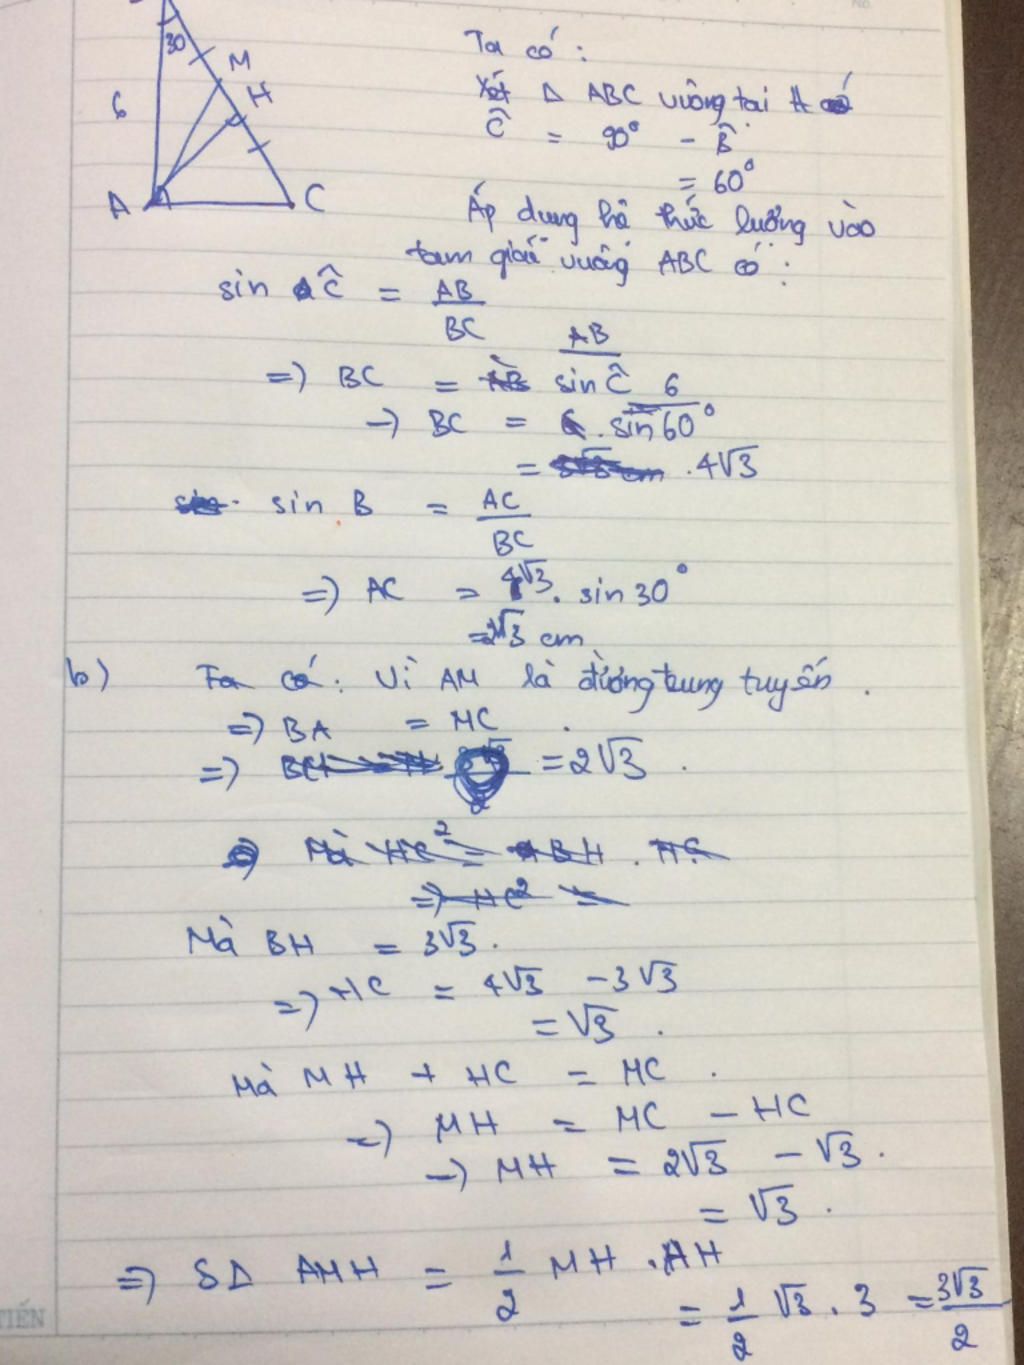 30
M
H
6
A
C
Ta có:
Xét Δ ABC vuông tại A có
Ĉ = 90° - B̂
= 60°
Áp dụng hệ thức lượng vào
tam giác vuông ABC có:
sin Ĉ = AB/BC
=> BC = AB/sin Ĉ
-> BC = 6/sin 60°
= 4√3
sin B = AC/BC
=> AC = 4√3 . sin 30°
= 2√3 cm
b) Ta có: Vì AM là đường trung tuyến.
=> BA = MC.
=> = 2√3.
Mà HC² = BH . HC
=> HC² =
Mà BH = 3√3.
=> HC = 4√3 - 3√3
= √3.
Mà MH + HC = MC.
=> MH = MC - HC
-> MH = 2√3 - √3.
= √3.
=> SΔ AMH = 1/2 MH . AH
= 1/2 √3 . 3 = 3√3/2
TIẾN